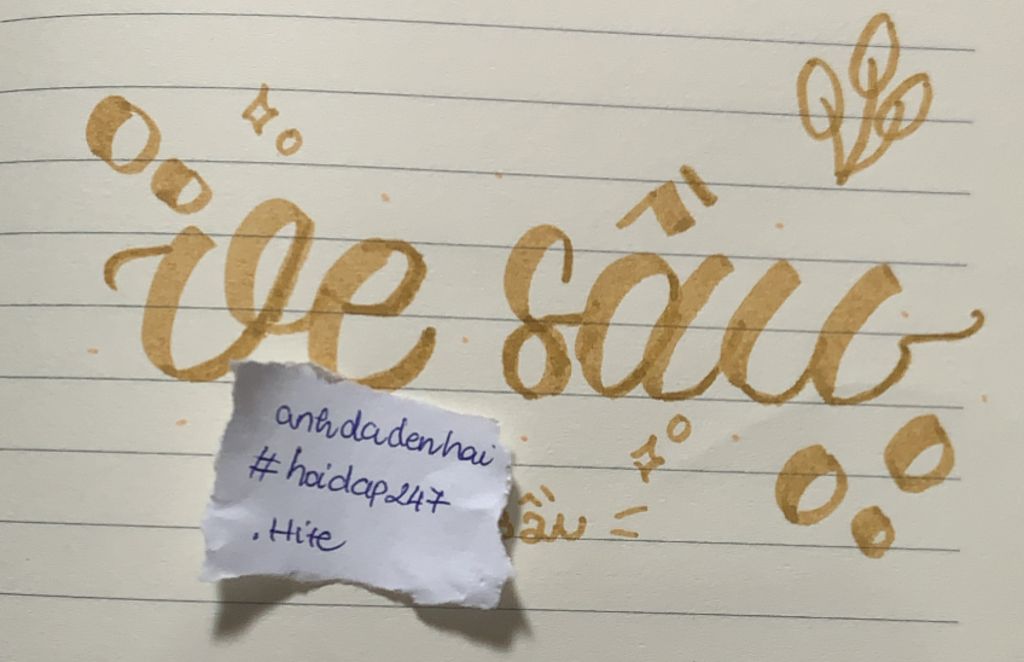 ve sầu
anhdadenhai
#hoidap247
.Hite
sầu